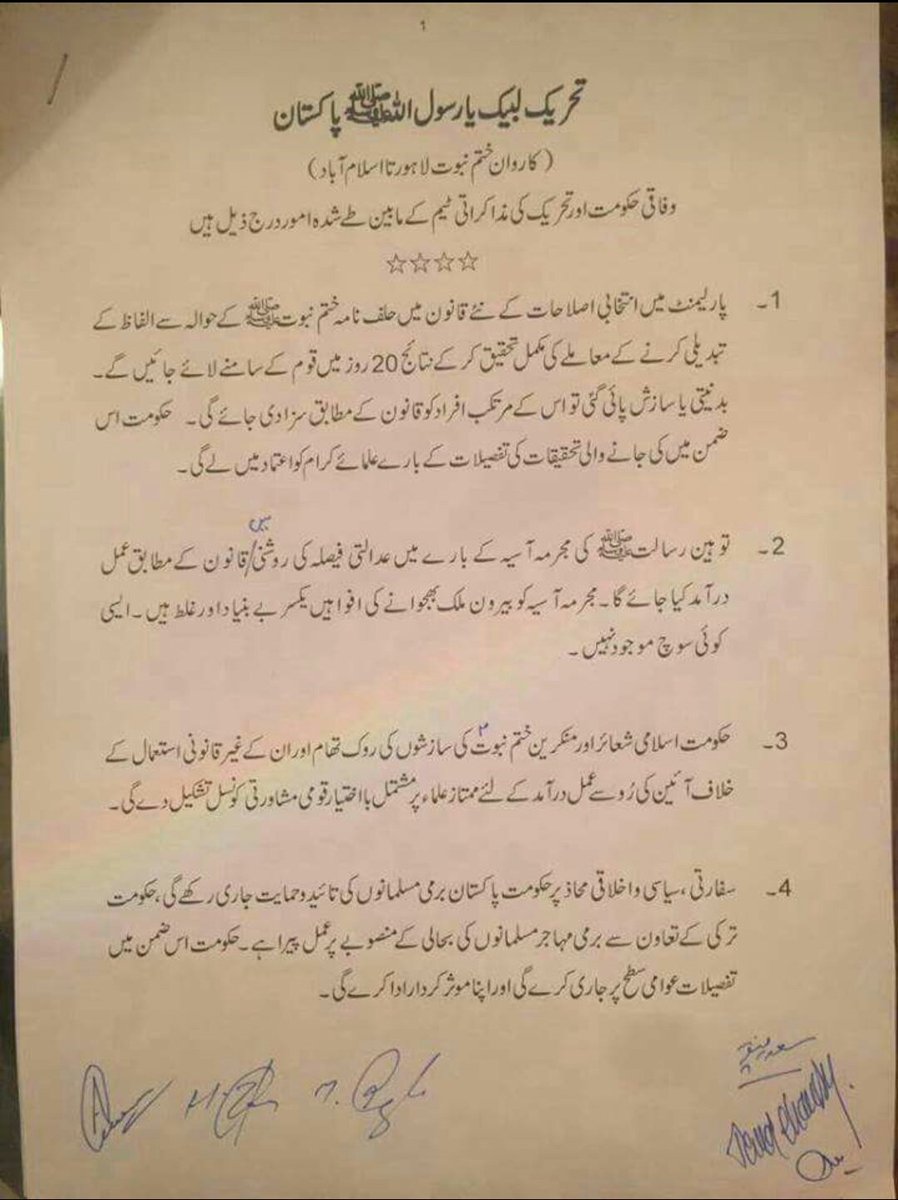 1
تحریک لبیک یا رسول اللہ ﷺ پاکستان
(کاروان ختم نبوت لاہور تا اسلام آباد)
وفاقی حکومت اور تحریک کی مذاکراتی ٹیم کے مابین طے شدہ امور درج ذیل ہیں
☆☆☆☆
1۔ پارلیمنٹ میں انتخابی اصلاحات کے نئے قانون میں حلف نامہ ختم نبوت ﷺ کے حوالہ سے الفاظ کے
تبدیلی کرنے کے معاملے کی مکمل تحقیق کر کے نتائج 20 روز میں قوم کے سامنے لائے جائیں گے۔
بدنیتی یا سازش پائی گئی تو اس کے مرتکب افراد کو قانون کے مطابق سزا دی جائے گی۔ حکومت اس
ضمن میں کی جانے والی تحقیقات کی تفصیلات کے بارے علمائے کرام کو اعتماد میں لے گی۔
2۔ توہین رسالت ﷺ کی مجرمہ آسیہ کے بارے میں عدالتی فیصلہ کی روشنی/ میں قانون کے مطابق عمل
درآمد کیا جائے گا۔ مجرمہ آسیہ کو بیرون ملک بھجوانے کی افواہیں یکسر بے بنیاد اور غلط ہیں۔ ایسی
کوئی سوچ موجود نہیں۔
3۔ حکومت اسلامی شعائر اور منکرین ختم نبوت کی سازشوں کی روک تھام اور ان کے غیر قانونی استعمال کے
خلاف آئین کی رُو سے عمل درآمد کے لئے ممتاز علماء پر مشتمل با اختیار قومی مشاورتی کونسل تشکیل دے گی۔
4۔ سفارتی، سیاسی و اخلاقی محاذ پر حکومت پاکستان برمی مسلمانوں کی تائید و حمایت جاری رکھے گی، حکومت
ترکی کے تعاون سے برمی مہاجر مسلمانوں کی بحالی کے منصوبے پر عمل پیرا ہے۔ حکومت اس ضمن میں
تفصیلات عوامی سطح پر جاری کرے گی اور اپنا موثر کردار ادا کرے گی۔